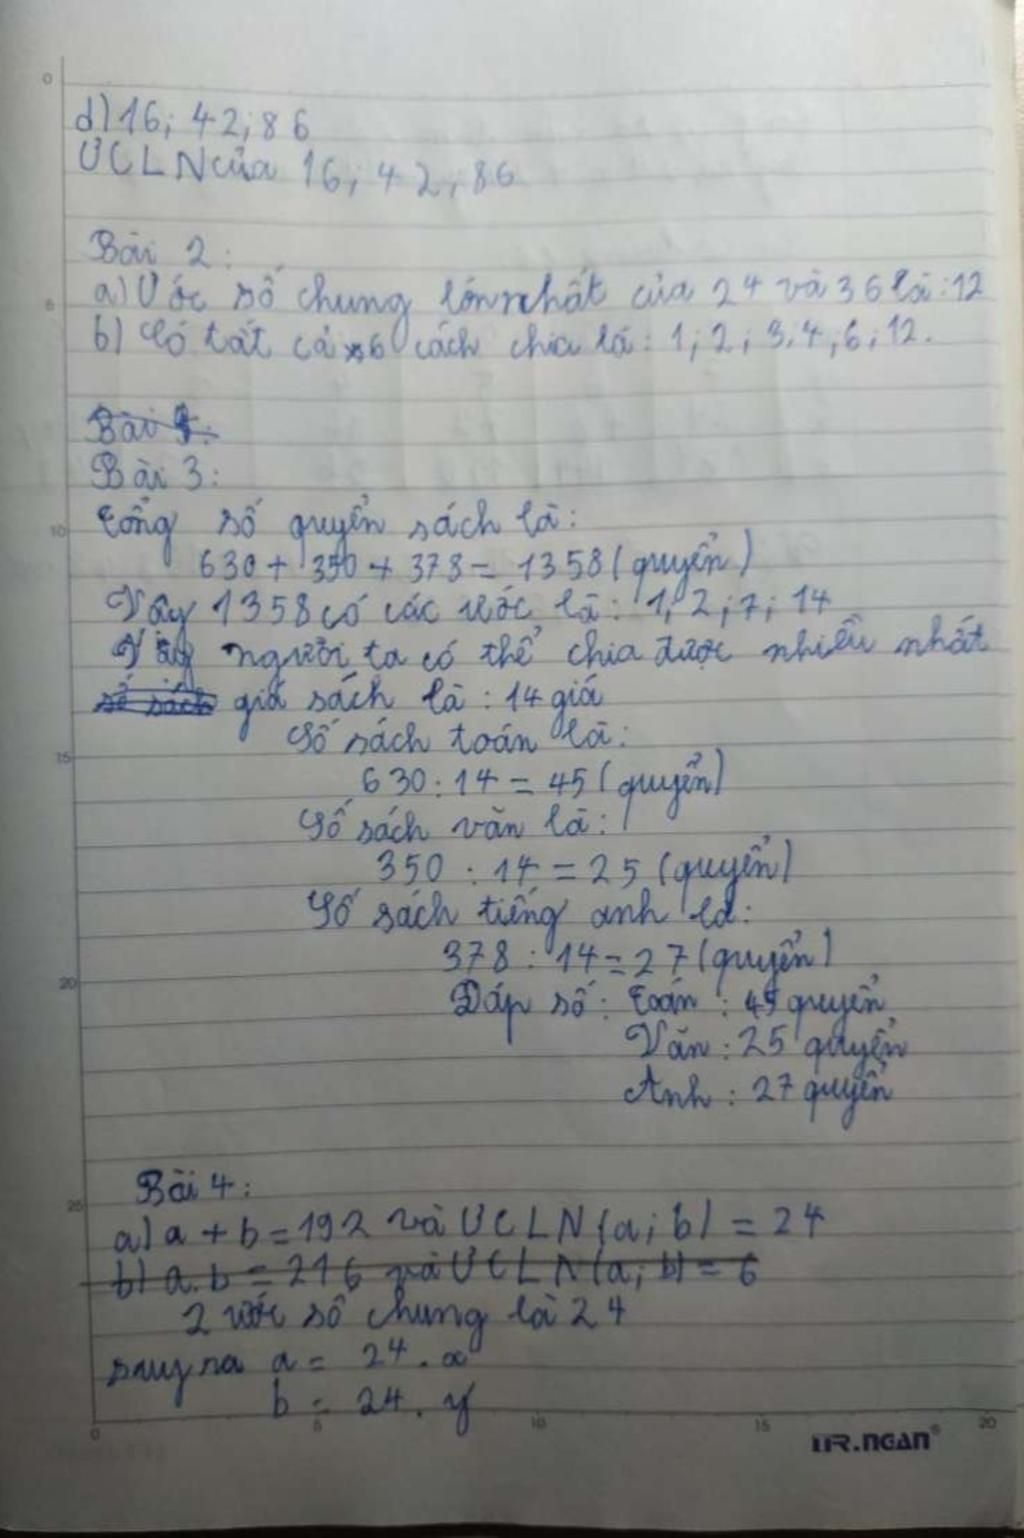 0
d) 16; 42; 86
ƯCLN của 16; 42; 86
Bài 2:
5
a) Ước số chung lớn nhất của 24 và 36 là: 12
b) Có tất cả 6 cách chia là: 1; 2; 3; 4; 6; 12.
Bài
Bài 3:
10
Tổng số quyển sách là:
630 + 350 + 378 = 1358 (quyển)
Vậy 1358 có các ước là: 1; 2; 7; 14
Vậy người ta có thể chia được nhiều nhất
số sách giá sách là: 14 giá
Số sách toán là:
15
630 : 14 = 45 (quyển)
Số sách văn là:
350 : 14 = 25 (quyển)
Số sách tiếng anh là:
378 : 14 = 27 (quyển)
20
Đáp số: Toán: 45 quyển
Văn: 25 quyển
Anh: 27 quyển
Bài 4:
25
a) a + b = 192 và ƯCLN (a; b) = 24
b) a.b = 216 và ƯCLN (a; b) = 6
2 ước số chung là 24
suy ra a = 24. x
b = 24. y
0 5 10 15 20
DR.NGAN